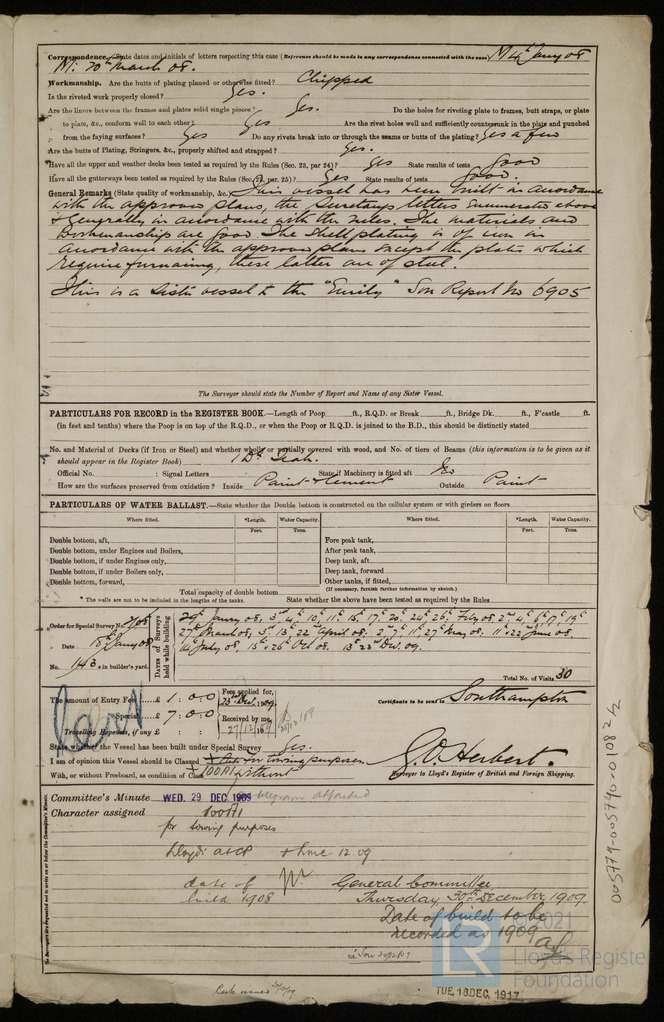 Correspondence. (State dates and initials of letters respecting this case (Reference should be made to any correspondence connected with the case) M 4th Jany 08
M. 20th March 08.
Workmanship. Are the butts of plating planed or otherwise fitted? Chipped
Is the riveted work properly closed? Yes.
Are the liners between the frames and plates solid single pieces? Yes. Do the holes for riveting plate to frames, butt straps, or plate
to plate, &c., conform well to each other? Yes Are the rivet holes well and sufficiently countersunk in the plate and punched
from the faying surfaces? Yes Do any rivets break into or through the seams or butts of the plating? Yes a few
Are the butts of Plating, Stringers, &c., properly shifted and strapped? Yes.
Have all the upper and weather decks been tested as required by the Rules (Sec. 25, par 24)? Yes State results of tests Good
Have all the gutterways been tested as required by the Rules (Sec. 25, par. 25)? Yes State results of tests Good.
General Remarks (State quality of workmanship, &c. This vessel has been built in accordance
with the approved plans, the Secretarys letters enumerated above
& generally in accordance with the rules. The materials and
Workmanship are good. The shell plating is of iron in
accordance with the approved plans except the plates which
require furnacing, these latter are of steel.
This is a Sister vessel to the "Emily" Son Report No 6905
The Surveyor should state the Number of Report and Name of any Sister Vessel.
PARTICULARS FOR RECORD in the REGISTER BOOK.—Length of Poop ft., R.Q.D. or Break ft., Bridge Dk. ft., F'castle ft.
(in feet and tenths) where the Poop is on top of the R.Q.D., or when the Poop or R.Q.D. is joined to the B.D., this should be distinctly stated
No. and Material of Decks (if Iron or Steel) and whether wholly or partially covered with wood, and No. of tiers of Beams (this information is to be given as it
should appear in the Register Book) 1 Dk Teak.
Official No. : Signal Letters State if Machinery is fitted aft No
How are the surfaces preserved from oxidation? Inside Paint & Cement Outside Paint
PARTICULARS OF WATER BALLAST.—State whether the Double bottom is constructed on the cellular system or with girders on floors
Where fitted. *Length. Water Capacity. Where fitted. *Length. Water Capacity.
Feet. Tons. Feet. Tons.
Double bottom, aft, Fore peak tank,
Double bottom, under Engines and Boilers, After peak tank,
Double bottom, if under Engines only, Deep tank, aft
Double bottom, if under Boilers only, Deep tank, forward
Double bottom, forward, Other tanks, if fitted,
Total capacity of double bottom (If necessary, furnish further information by sketch.)
* The wells are not to be included in the lengths of the tanks. State whether the above have been tested as required by the Rules
Order for Special Survey No. 708
Date 18th Jany 08
No. 143 in builder's yard.
DATES of Surveys held while building
29th Jany 08, 3rd, 4th, 10th, 11th, 15th, 17th, 20th, 24th, 26th, Feby 08, 2nd, 4th, 6th, 17th, 19th
27th March 08, 3rd, 13th, 22nd April 08, 2nd, 7th, 11th, 27th May 08, 11th & 22nd June 08,
14th July 08, 15th & 26th Oct 08, 13th & 23rd Dec. 09.
Total No. of Visits 30
The amount of Entry Fee £ 1 : 0 : 0 Fees applied for, 23rd Dec. 1909
Special £ 7 : 0 : 0 Received by me, 27/12/1909
Travelling Expenses, if any £ : :
Certificate to be sent to Southampton
State whether the Vessel has been built under Special Survey Yes.
I am of opinion this Vessel should be Classed + for towing purposes
With, or without Freeboard, as condition of Class 100A1 without
G.O. Herbert.
Surveyor to Lloyd's Register of British and Foreign Shipping.
Committee's Minute WED. 29 DEC. 1909 telegram attached
Character assigned 100A1
for towing purposes
Lloyds A&CP + Lmc 12.09
date of build 1908
General Committee,
Thursday, 30th December 1909.
Date of build to be
recorded as 1909
Certs issued
TUE. 18 DEC. 1917
The Surveyors are requested not to write on or below the Committee's Minute.
005779-005790-0108 2/2
© 2021
LR
Lloyd's Register
Foundation